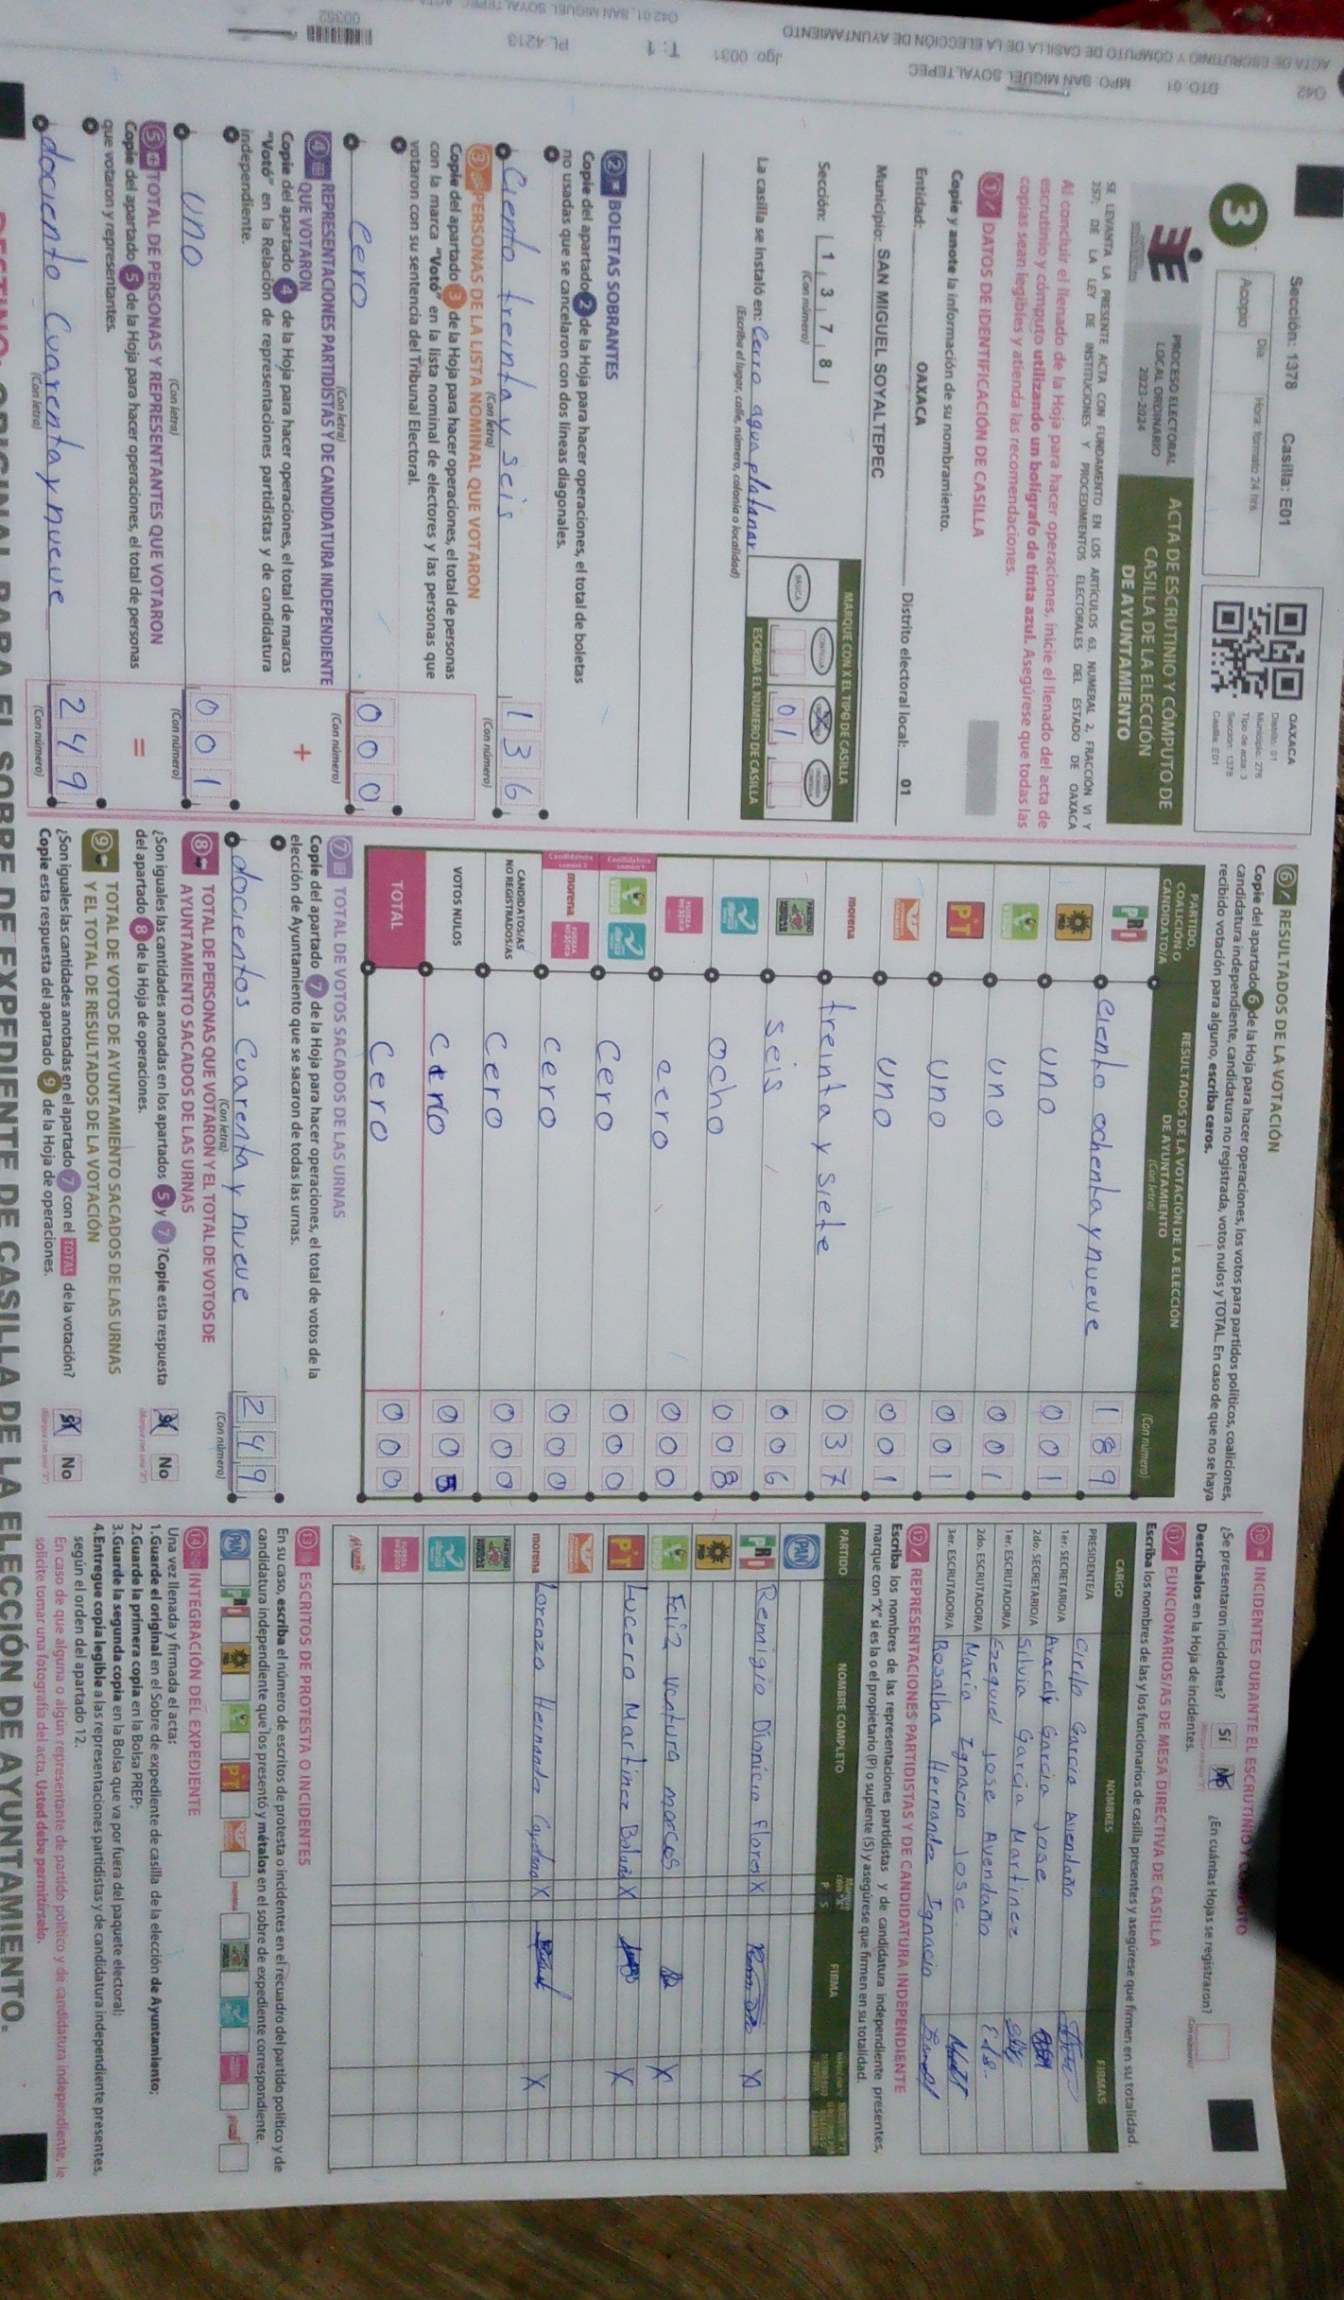 Sección: 1378 Casilla: E01
3
Acopio
Día Hora: formato 24 hrs.
OAXACA
Distrito: 01
Municipio: 278
Tipo de acta: 3
Sección: 1378
Casilla: E01
PROCESO ELECTORAL
LOCAL ORDINARIO
2023-2024
ACTA DE ESCRUTINIO Y CÓMPUTO DE
CASILLA DE LA ELECCIÓN
DE AYUNTAMIENTO
SE LEVANTA LA PRESENTE ACTA CON FUNDAMENTO EN LOS ARTÍCULOS 63, NUMERAL 2, FRACCIÓN VI Y
257; DE LA LEY DE INSTITUCIONES Y PROCEDIMIENTOS ELECTORALES DEL ESTADO DE OAXACA
Al concluir el llenado de la Hoja para hacer operaciones, inicie el llenado del acta de
escrutinio y cómputo utilizando un bolígrafo de tinta azul. Asegúrese que todas las
copias sean legibles y atienda las recomendaciones.
1 DATOS DE IDENTIFICACIÓN DE CASILLA
Copie y anote la información de su nombramiento.
Entidad: OAXACA Distrito electoral local: 01
Municipio: SAN MIGUEL SOYALTEPEC
Sección: 1 3 7 8
(Con número)
MARQUE CON X EL TIPO DE CASILLA
BÁSICA
01
ESCRIBA EL NÚMERO DE CASILLA
La casilla se instaló en: Cerro agua platanar
(Escriba el lugar, calle, número, colonia o localidad)
2 BOLETAS SOBRANTES
Copie del apartado 2 de la Hoja para hacer operaciones, el total de boletas
no usadas que se cancelaron con dos líneas diagonales.
Ciento treinta y seis 136
(Con letra) (Con número)
3 PERSONAS DE LA LISTA NOMINAL QUE VOTARON
Copie del apartado 3 de la Hoja para hacer operaciones, el total de personas
con la marca "Votó" en la lista nominal de electores y las personas que
votaron con su sentencia del Tribunal Electoral.
Cero 000
(Con letra) (Con número)
4 REPRESENTACIONES PARTIDISTAS Y DE CANDIDATURA INDEPENDIENTE
QUE VOTARON +
Copie del apartado 4 de la Hoja para hacer operaciones, el total de marcas
"Votó" en la Relación de representaciones partidistas y de candidatura
independiente.
uno 001
(Con letra) (Con número)
5 TOTAL DE PERSONAS Y REPRESENTANTES QUE VOTARON =
Copie del apartado 5 de la Hoja para hacer operaciones, el total de personas
que votaron y representantes.
dociento Cuarenta y nueve 249
(Con letra) (Con número)
6 RESULTADOS DE LA VOTACIÓN
Copie del apartado 6 de la Hoja para hacer operaciones, los votos para partidos políticos, coaliciones,
candidatura independiente, candidatura no registrada, votos nulos y TOTAL. En caso de que no se haya
recibido votación para alguno, escriba ceros.
PARTIDO, COALICIÓN O CANDIDATO/A
RESULTADOS DE LA VOTACIÓN DE LA ELECCIÓN DE AYUNTAMIENTO
(Con letra) (Con número)
PRI Ciento ochenta y nueve 189
PRD uno 001
VERDE uno 001
PT uno 001
uno 001
morena treinta y siete 037
seis 006
ocho 008
cero 000
Cero 000
morena cero 000
CANDIDATOS/AS NO REGISTRADOS/AS Cero 000
VOTOS NULOS Cero 005
TOTAL Cero 000
7 TOTAL DE VOTOS SACADOS DE LAS URNAS
Copie del apartado 7 de la Hoja para hacer operaciones, el total de votos de la
elección de Ayuntamiento que se sacaron de todas las urnas.
docientos Cuarenta y nueve 249
(Con letra) (Con número)
8 TOTAL DE PERSONAS QUE VOTARON Y EL TOTAL DE VOTOS DE
AYUNTAMIENTO SACADOS DE LAS URNAS
¿Son iguales las cantidades anotadas en los apartados 5 y 7 ? Copie esta respuesta
del apartado 8 de la Hoja de operaciones.
Sí No
9 TOTAL DE VOTOS DE AYUNTAMIENTO SACADOS DE LAS URNAS
Y EL TOTAL DE RESULTADOS DE LA VOTACIÓN
¿Son iguales las cantidades anotadas en el apartado 7 con el TOTAL de la votación?
Copie esta respuesta del apartado 9 de la Hoja de operaciones.
Sí No
10 INCIDENTES DURANTE EL ESCRUTINIO Y CÓMPUTO
¿Se presentaron incidentes? Sí No ¿En cuántas Hojas se registraron?
Descríbalos en la Hoja de incidentes.
11 FUNCIONARIOS/AS DE MESA DIRECTIVA DE CASILLA
Escriba los nombres de las y los funcionarios de casilla presentes y asegúrese que firmen en su totalidad.
CARGO NOMBRES FIRMAS
PRESIDENTE/A Cirilo Garcia Avendaño
1er. SECRETARIO/A Aracely Garcia Jose
2do. SECRETARIO/A Silvia Garcia Martinez
1er. ESCRUTADOR/A Ezequiel Jose Avendaño
2do. ESCRUTADOR/A Maria Ignacio Jose
3er. ESCRUTADOR/A Rosalba Hernandez Ignacio
12 REPRESENTACIONES PARTIDISTAS Y DE CANDIDATURA INDEPENDIENTE
Escriba los nombres de las representaciones partidistas y de candidatura independiente presentes,
marque con "X" si es la o el propietario (P) o suplente (S) y asegúrese que firmen en su totalidad.
PARTIDO NOMBRE COMPLETO P S FIRMA
PAN
PRI Remigio Dionicio Flores X X
PRD
VERDE Feliz Ventura marcos X
PT Lucero Martinez X X
morena Lorenzo Hernandez X X
13 ESCRITOS DE PROTESTA O INCIDENTES
En su caso, escriba el número de escritos de protesta o incidentes en el recuadro del partido político y de
candidatura independiente que los presentó y métalos en el sobre de expediente correspondiente.
PAN PRI PRD VERDE PT morena
14 INTEGRACIÓN DEL EXPEDIENTE
Una vez llenada y firmada el acta:
1.Guarde el original en el Sobre de expediente de casilla de la elección de Ayuntamiento;
2.Guarde la primera copia en la Bolsa PREP;
3.Guarde la segunda copia en la Bolsa que va por fuera del paquete electoral;
4.Entregue copia legible a las representaciones partidistas y de candidatura independiente presentes,
según el orden del apartado 12.
En caso de que alguna o algún representante de partido político y de candidatura independiente, le
solicite tomar una fotografía del acta. Usted debe permitírselo.
DESTINO: ORIGINAL PARA EL SOBRE DE EXPEDIENTE DE CASILLA DE LA ELECCIÓN DE AYUNTAMIENTO.
042 DTO: 01 MPO: SAN MIGUEL SOYALTEPEC
ACTA DE ESCRUTINIO Y COMPUTO DE CASILLA DE LA ELECCIÓN DE AYUNTAMIENTO
Jgo: 0031 T: 1 PL: 4213
00352